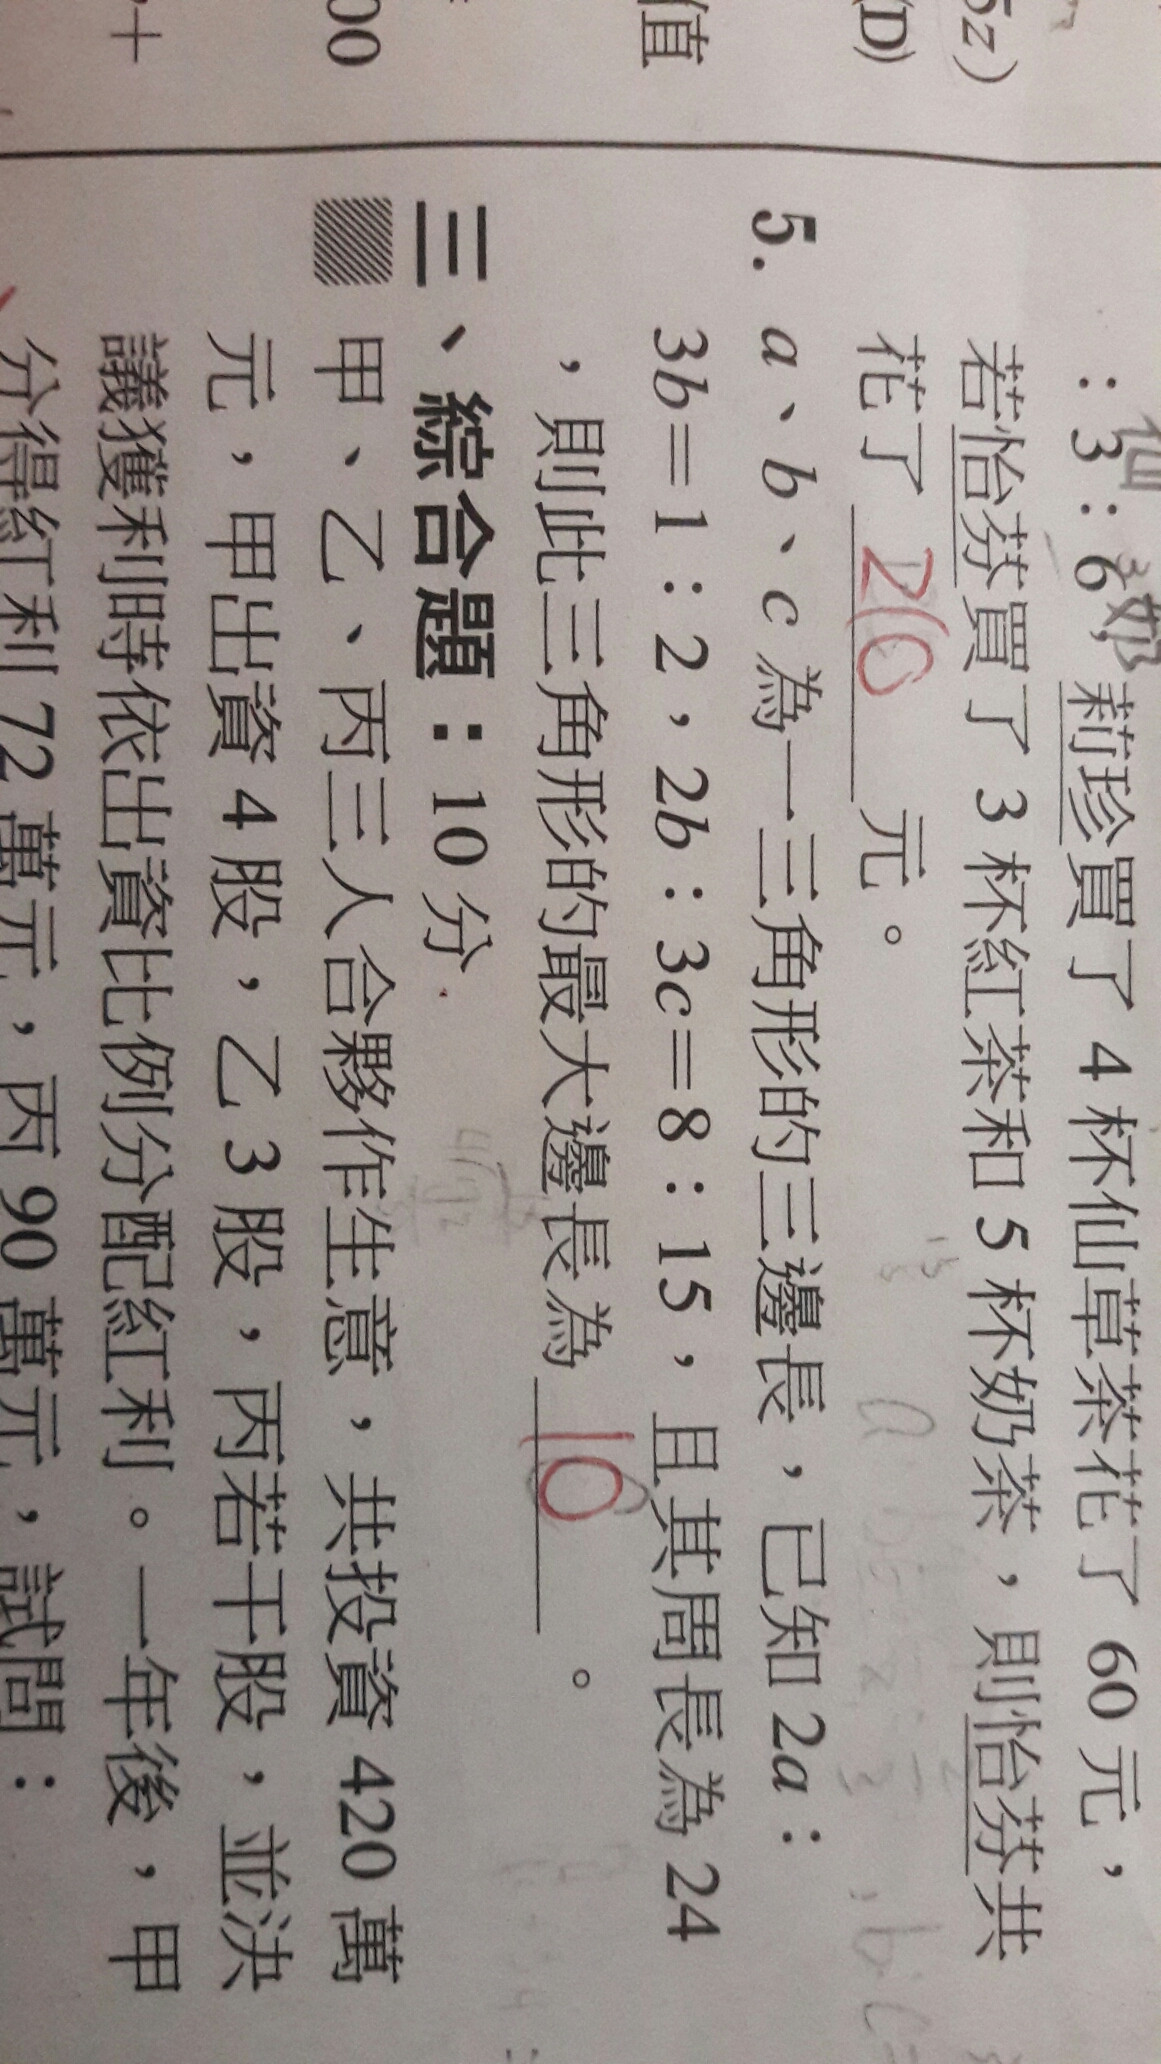 5z)
(D)
值
00
+
：3：6，莉珍買了 4 杯仙草茶花了 60 元，
仙
奶
若怡芬買了 3 杯紅茶和 5 杯奶茶，則怡芬共
花了 210 元。
5. a、b、c 為一三角形的三邊長，已知 2a：
3b＝1：2，2b：3c＝8：15，且其周長為 24
，則此三角形的最大邊長為 10 。
三、綜合題：10 分
甲、乙、丙三人合夥作生意，共投資 420 萬
元，甲出資 4 股，乙 3 股，丙若干股，並決
議獲利時依出資比例分配紅利。一年後，甲
分得紅利 72 萬元，丙 90 萬元，試問：